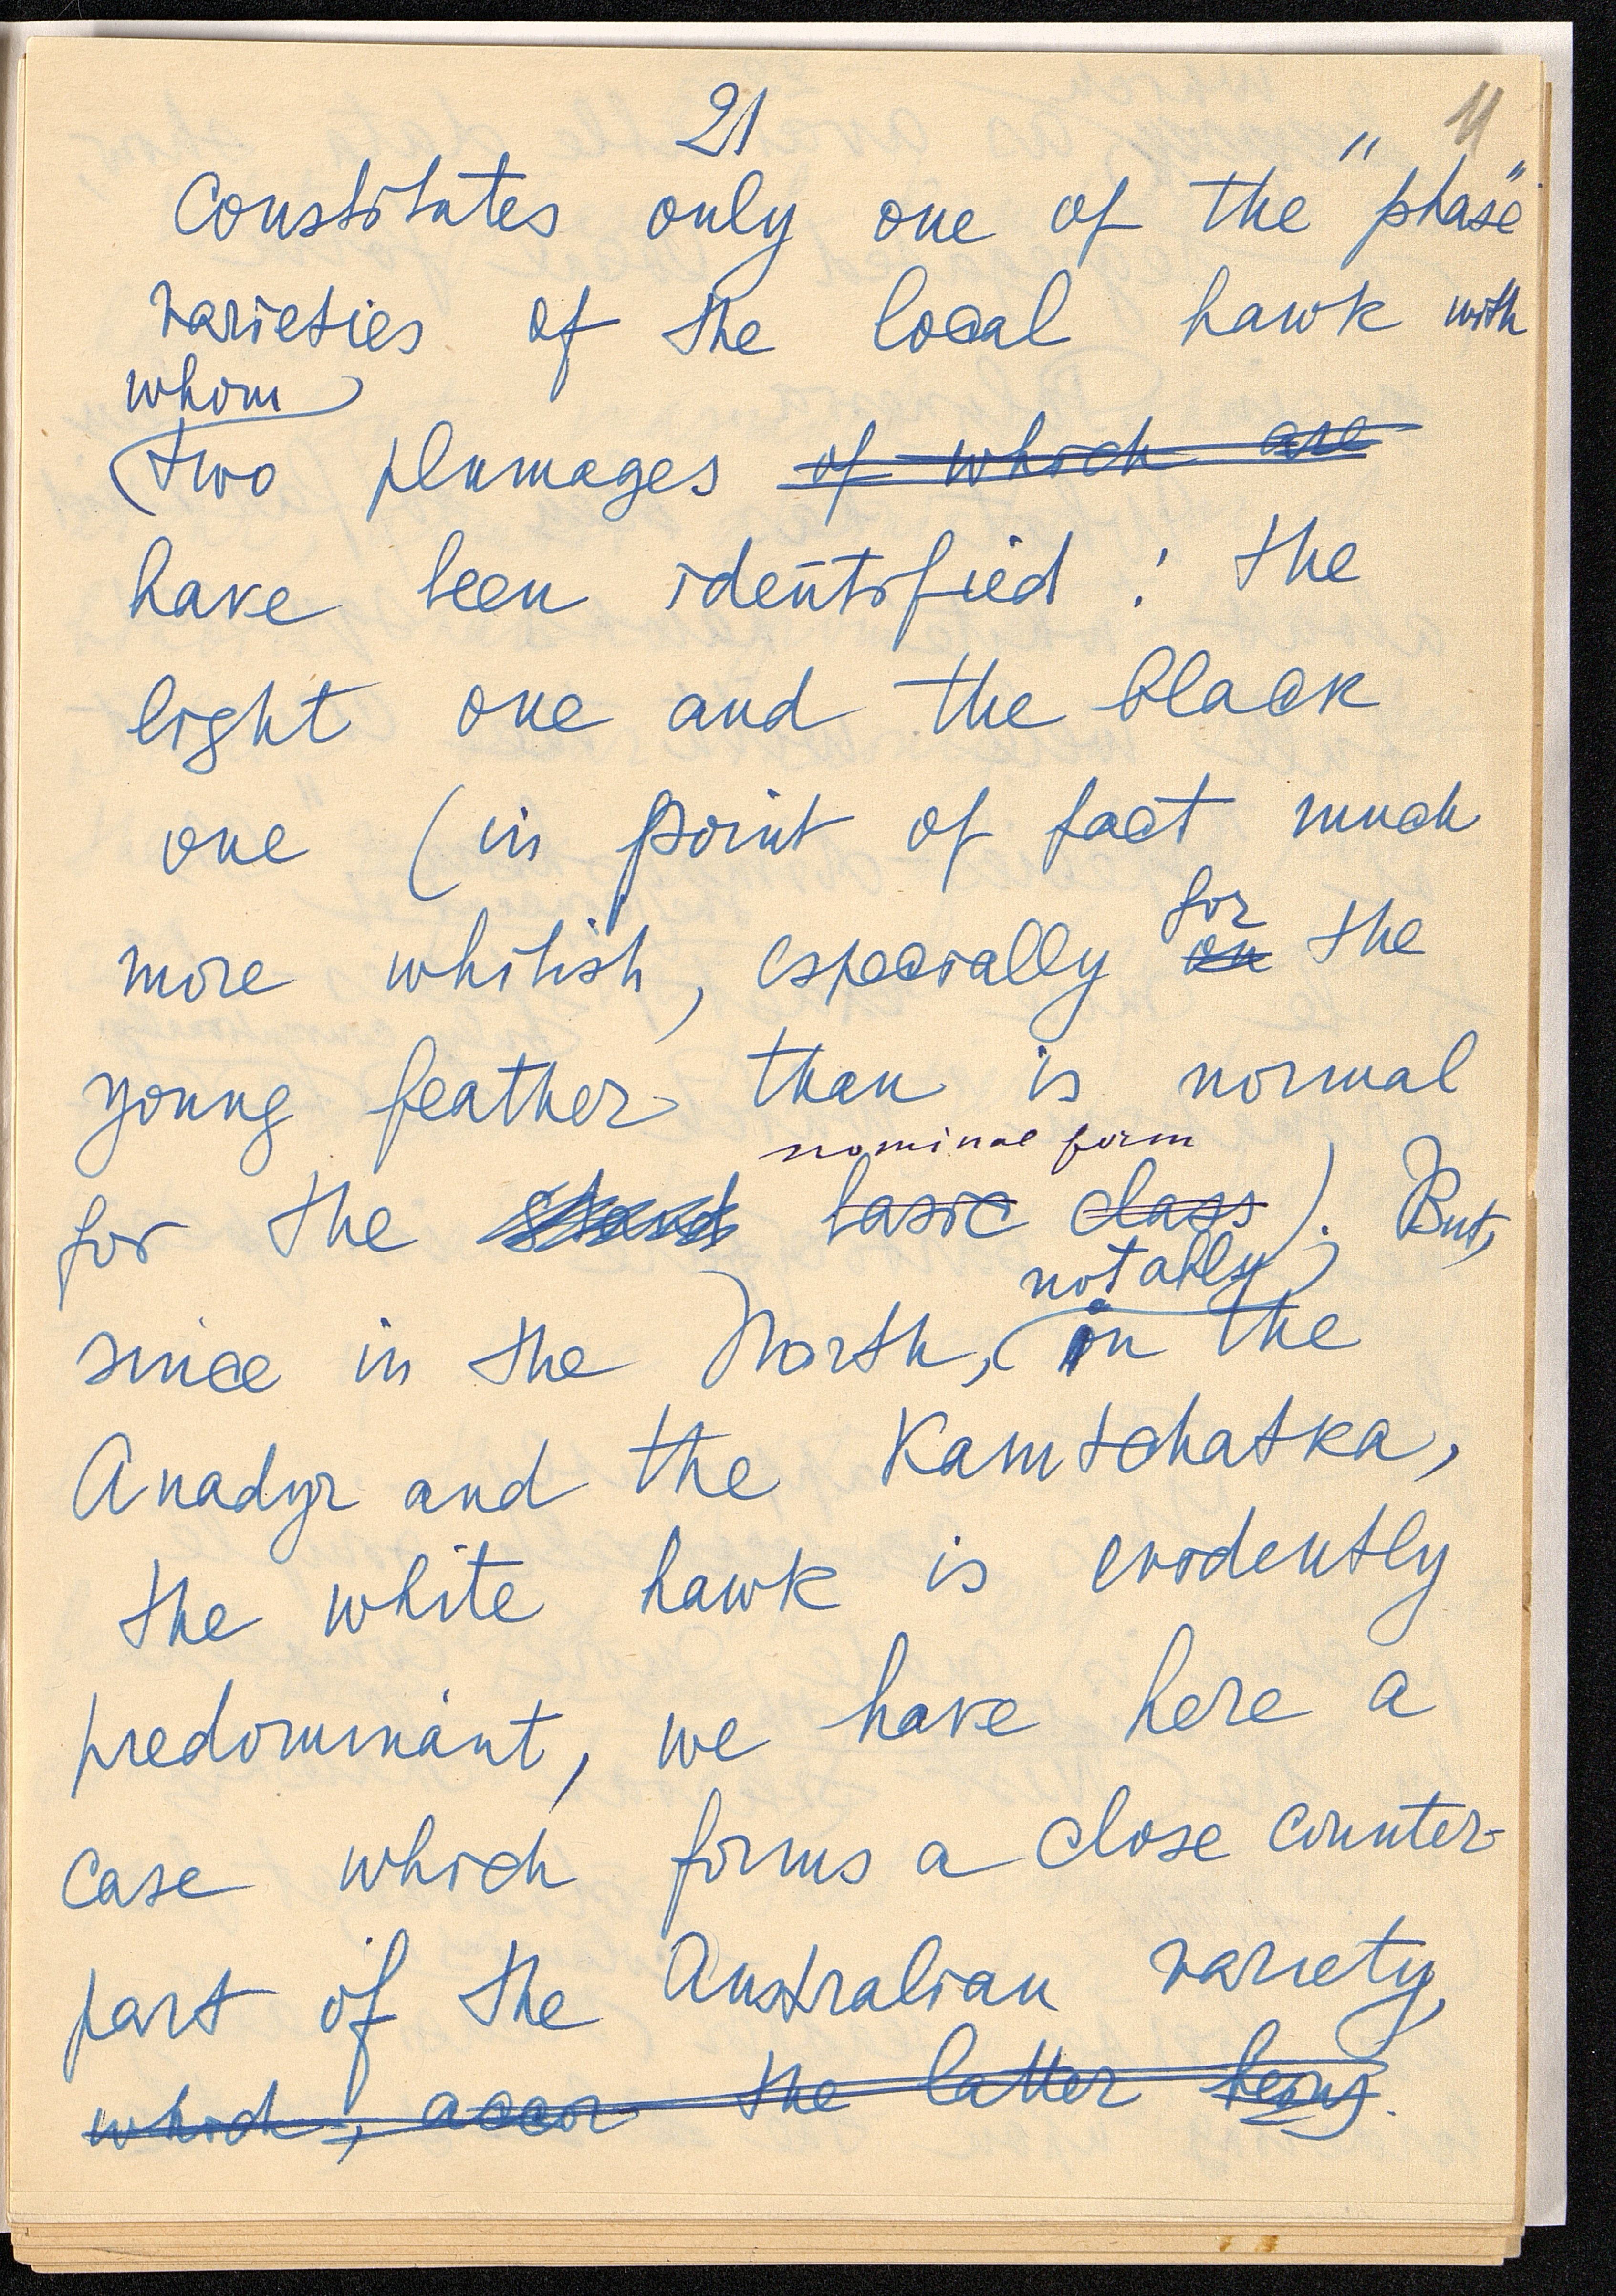 21
11
Constitutes only one of the "phase"
varieties of the local hawk with
whom
two plumages of which are
have been identified : the
light one and the black
one (in point of fact much
for
more whitish, especially on the
young feather than is normal
nominal form
for the stand basic class). But,
notably
since in the North, in the
Anadyr and the Kamtchatka,
the white hawk is evidently
predominant, we have here a
case which forms a close counter-
part of the Australian variety,
which, accor the latter being.